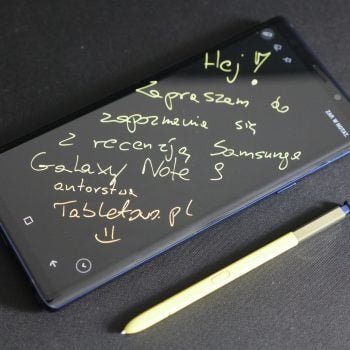 Hej!
Zapraszam do
zapoznania się
z recenzją Samsunga
Galaxy Note 9
autorstwa
Tabletowo.pl